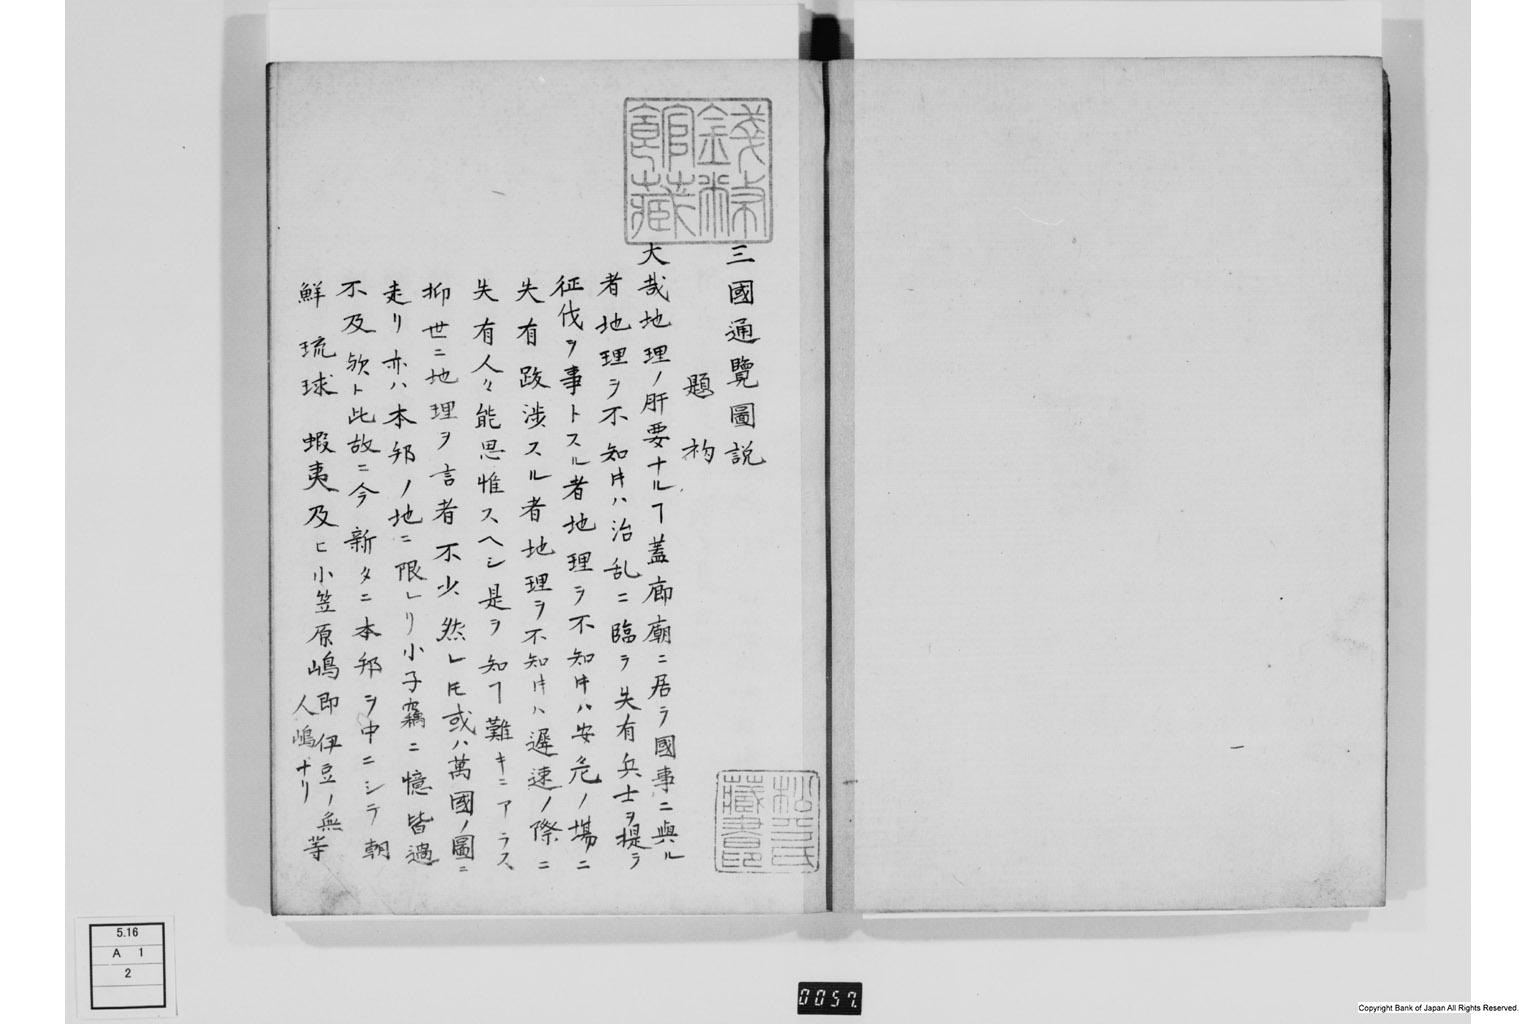 三國通覽圖説
題初
大哉地理ノ肝要ナルヿ蓋廊廟ニ居ラ國事ニ與ル
者地理ヲ不知𪜈ハ治乱ニ臨ラ失有兵士ヲ提ラ
征伐ヲ事トスル者地理ヲ不知𪜈ハ安危ノ塲ニ
失有跋渉スル者地理ヲ不知𪜈ハ遲速ノ際ニ
失有人々能思惟スヘシ是ヲ知ヿ難キニアラス
抑世ニ地理ヲ言者不少然レ𪜈或ハ萬國ノ圖ニ
走リ亦ハ本邦ノ地ニ限レリ小子竊ニ憶皆過
不及歟ト此故ニ今新タニ本邦ヲ中ニシテ朝
鮮琉球蝦夷及ヒ小笠原嶋即伊豆ノ無人嶋ナリ等
錢幣館藏
松平氏藏書印
5.16
A 1
2
0057.
Copyright Bank of Japan All Rights Reserved.